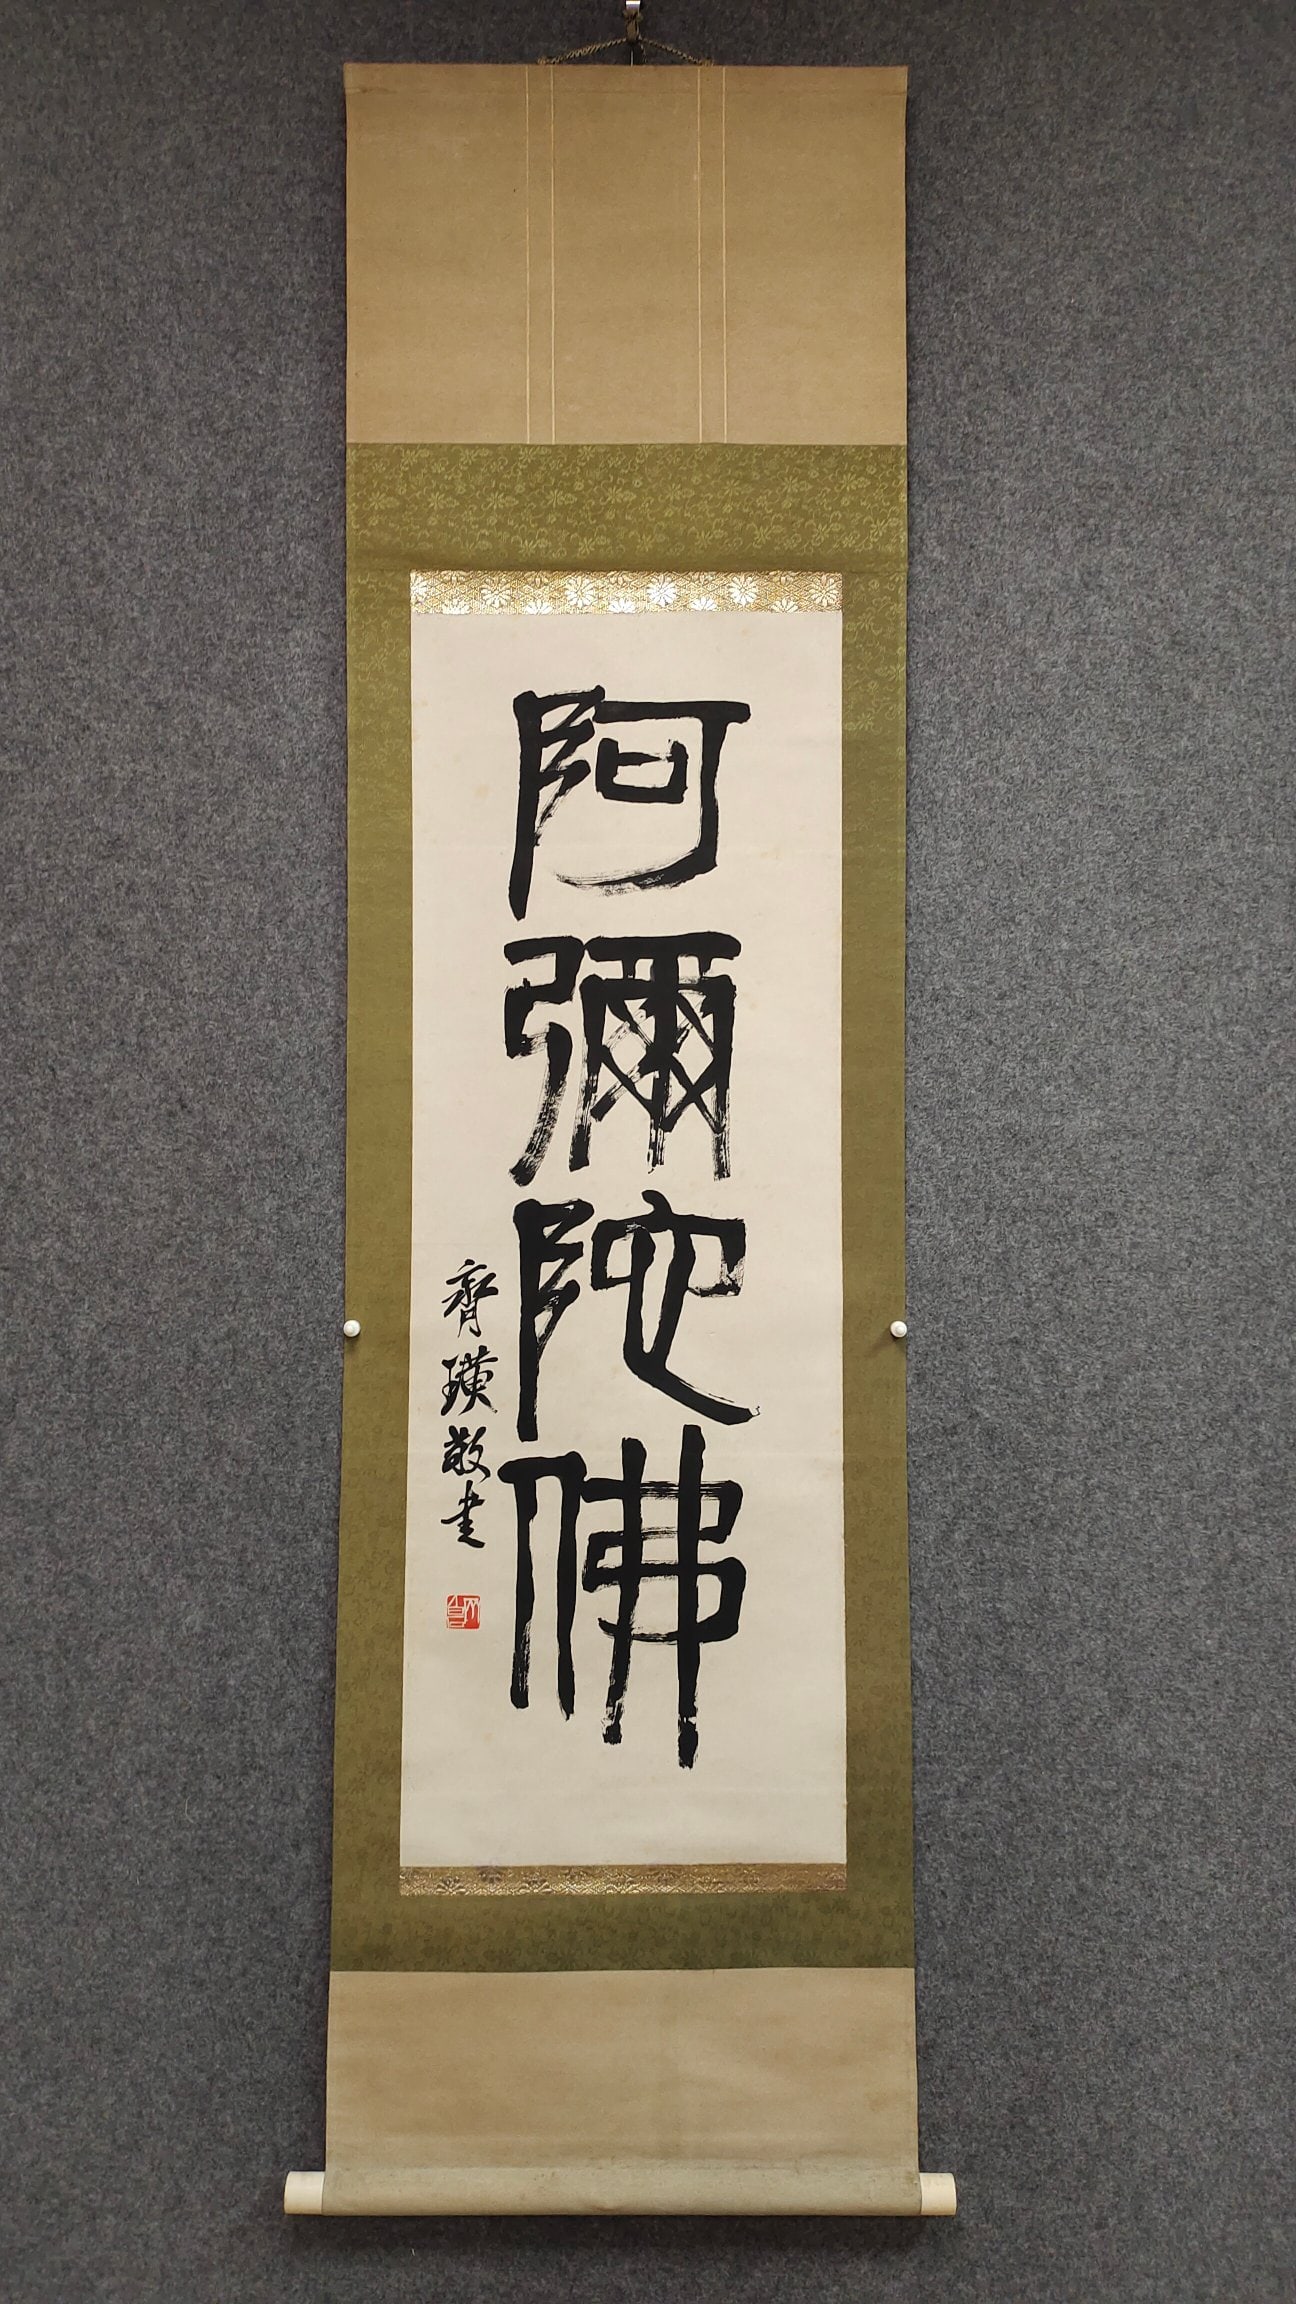 阿彌陀佛
齊璜敬書